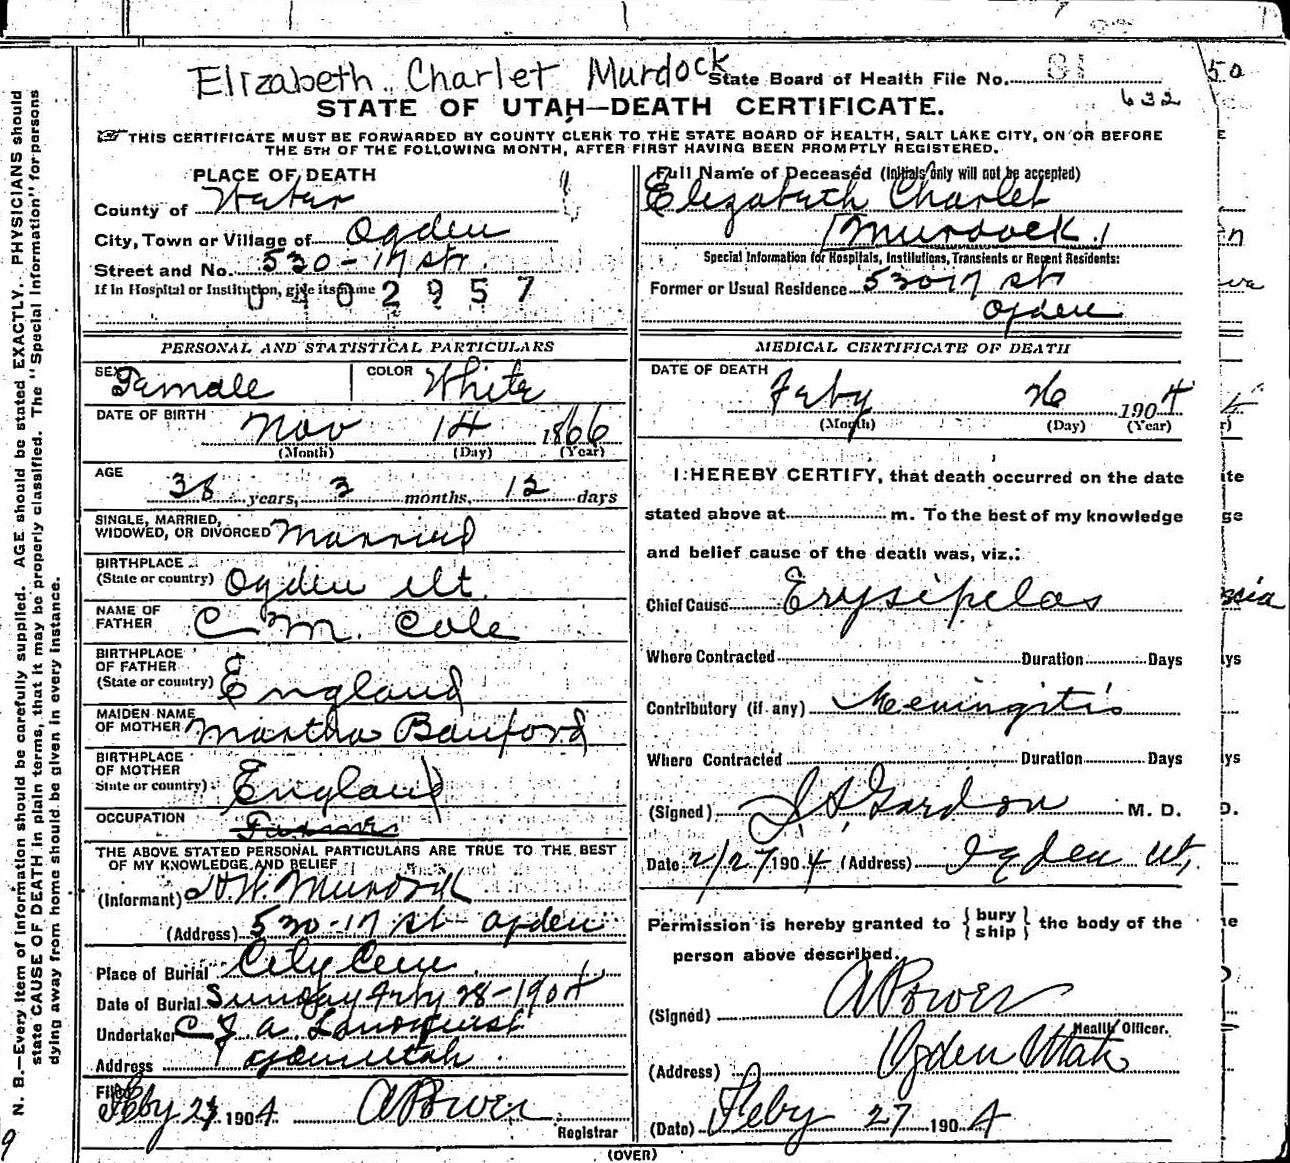 Elizabeth Charlet Murdock
State Board of Health File No. 81
632
STATE OF UTAH—DEATH CERTIFICATE.
THIS CERTIFICATE MUST BE FORWARDED BY COUNTY CLERK TO THE STATE BOARD OF HEALTH, SALT LAKE CITY, ON OR BEFORE
THE 5TH OF THE FOLLOWING MONTH, AFTER FIRST HAVING BEEN PROMPTLY REGISTERED.
PLACE OF DEATH
County of Weber
City, Town or Village of Ogden
Street and No. 530 - 17 str.
If in Hospital or Institution, give its name
0402957
Full Name of Deceased (Initials only will not be accepted)
Elizabeth Charlet
Murdock
Special Information for Hospitals, Institutions, Transients or Recent Residents:
Former or Usual Residence 530 17 st
Ogden
PERSONAL AND STATISTICAL PARTICULARS
SEX Female COLOR White
DATE OF BIRTH
Nov 14 1866
(Month) (Day) (Year)
AGE
38 years, 3 months, 12 days
SINGLE, MARRIED,
WIDOWED, OR DIVORCED Married
BIRTHPLACE
(State or country) Ogden Ut.
NAME OF
FATHER C M. Cole
BIRTHPLACE
OF FATHER
(State or country) England
MAIDEN NAME
OF MOTHER Martha Banford
BIRTHPLACE
OF MOTHER
State or country) England
OCCUPATION
THE ABOVE STATED PERSONAL PARTICULARS ARE TRUE TO THE BEST
OF MY KNOWLEDGE AND BELIEF
(Informant) W. Murdock
(Address) 530-17 st Ogden
Place of Burial City Cem
Date of Burial Sunday Feby 28-1904
Undertaker C J. A. Lindquist
Address Ogden Utah
Filed
Feby 27 1904 A Power
Registrar
MEDICAL CERTIFICATE OF DEATH
DATE OF DEATH
Feby 26 1904
(Month) (Day) (Year)
I HEREBY CERTIFY, that death occurred on the date
stated above at m. To the best of my knowledge
and belief cause of the death was, viz.:
Chief Cause Erysipelas
Where Contracted Duration Days
Contributory (if any) Meningitis
Where Contracted Duration Days
(Signed) Gordon M. D.
Date 2/27 1904 (Address) Ogden Ut,
Permission is hereby granted to {bury
ship} the body of the
person above described.
(Signed) A Power
Health Officer.
(Address) Ogden Utah
(Date) Feby 27 1904
(OVER)
N. B.—Every item of information should be carefully supplied. AGE should be stated EXACTLY. PHYSICIANS should
state CAUSE OF DEATH in plain terms, that it may be properly classified. The "Special Information" for persons
dying away from home should be given in every instance.